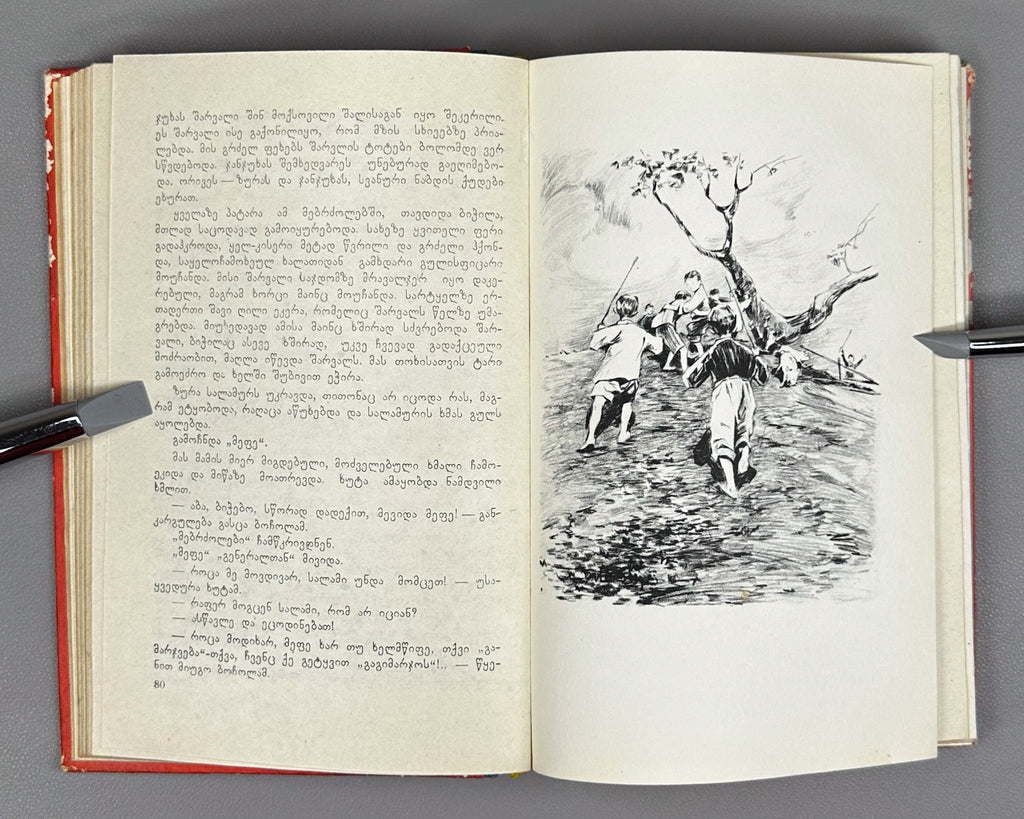 ჯუხას შარვალი შინ მოქსოვილი შალისაგან იყო შეკერილი.
ეს შარვალი ისე გაქონილიყო, რომ მზის სხივებზე პრია-
ლებდა. მის გრძელ ფეხებს შარვლის ტოტები ბოლომდე ვერ
სწვდებოდა. ჯანჯუხას შემხედვარეს უნებურად გაეღიმებო-
და. ორივეს — ზურას და ჯანჯუხას, სვანური ნაბდის ქუდები
ეხურათ.
ყველაზე პატარა ამ მებრძოლებში, თავდიდა ბიჭილა,
მთლად საცოდავად გამოიყურებოდა. სახეზე ყვითელი ფერი
გადაჰკროდა, ყელ-კისერი მეტად წვრილი და გრძელი ჰქონ-
და, საყელოჩამოხეულ ხალათიდან გამხდარი გულისფიცარი
მოუჩანდა. მისი შარვალი საჯდომზე მრავალჯერ იყო დაკე-
რებული, მაგრამ ხორცი მაინც მოუჩანდა. სარტყელზე ერ-
თადერთი შავი ღილი ეკერა, რომელიც შარვალს წელზე უმა-
გრებდა. მიუხედავად ამისა მაინც ხშირად სძვრებოდა შარ-
ვალი, ბიჭილაც ასევე ხშირად, უკვე ჩვევად გადაქცეული
მოძრაობით, მაღლა იწევდა შარვალს. მას თოხისათვის ტარი
გამოეძრო და ხელში შუბივით ეჭირა.
ზურა სალამურს უკრავდა, თითონაც არ იცოდა რას, მაგ-
რამ ეტყობოდა, რაღაცა აწუხებდა და სალამურის ხმას გულს
აყოლებდა.
გამოჩნდა „მეფე“.
მას მამის მიერ მიგდებული, მოძველებული ხმალი ჩამო-
ეკიდა და მიწაზე მოათრევდა. ხუტა ამაყობდა ნამდვილი
ხმლით.
— აბა, ბიჭებო, სწორად დადექით, მევიდა მეფე! — გან-
კარგულება გასცა ბოჩოლამ.
„მებრძოლები“ ჩამწკრივდნენ.
„მეფე“ „გენერალთან“ მივიდა.
— როცა მე მოვდივარ, სალამი უნდა მომცეთ! — უსა-
ყვედურა ხუტამ.
— რაფერ მოგცენ სალამი, რომ არ იციან?
— ასწავლე და ეცოდინებათ!
— როცა მოდიხარ, მეფე ხარ თუ ხელმწიფე, თქვი „გა-
მარჯვება“-თქვა, ჩვენც ქე გეტყვით „გაგიმარჯოს“!.. — წყე-
ნით მიუგო ბოჩოლამ.
80